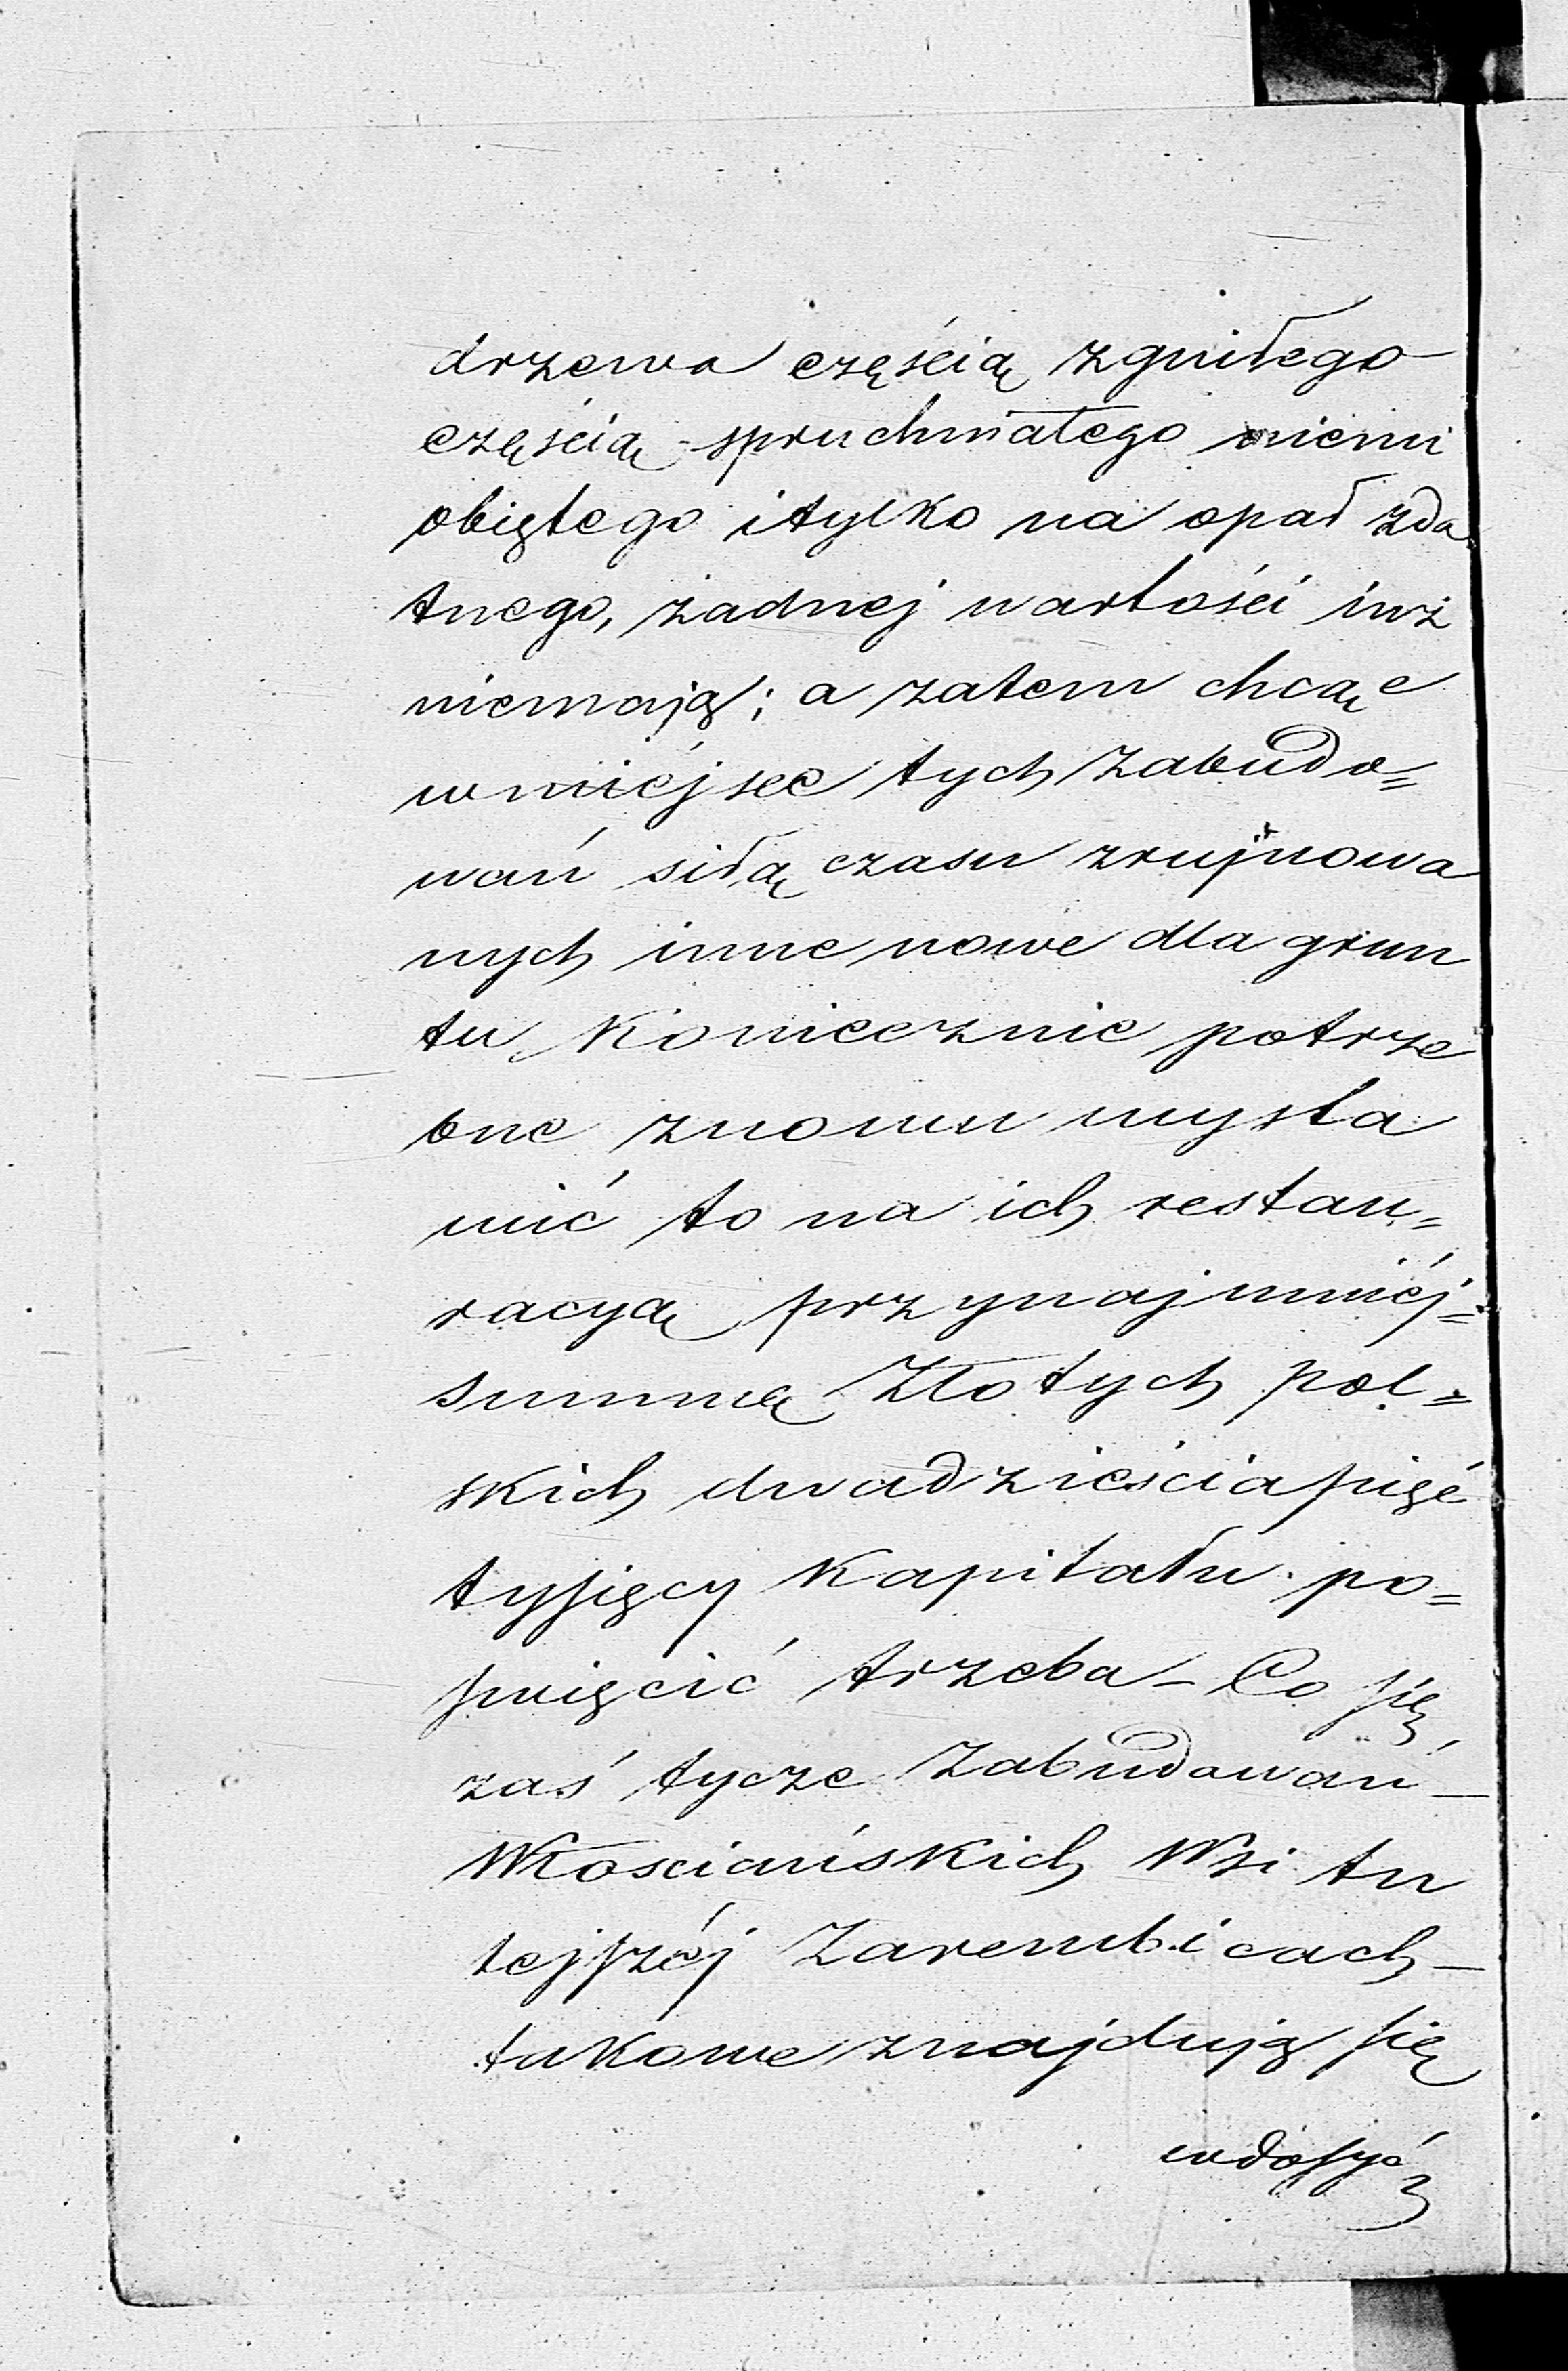 drzewa częścią zgniłego
częścią spruchniałego niemi
obiętego i tylko na opał zda
tnego, żadnej wartości iuż
niemają; a zatem chcąc
w miéjsce tych Zabudo=
wań siłą czasu zrujnowa
nych inne nowe dla grun
tu Koniecznie potrze
bne znowu wysta
wić to na ich restau=
racyą przynajmniéj=
summę Złotych pol=
skich dwadzieścia pięć
tysięcy Kapitału po=
święcić trzeba – Co się
zaś tycze Zabudowań –
Włościańskich Wsi tu
tejszéj Zarembicach –
takowe znajdują się
w dosyć